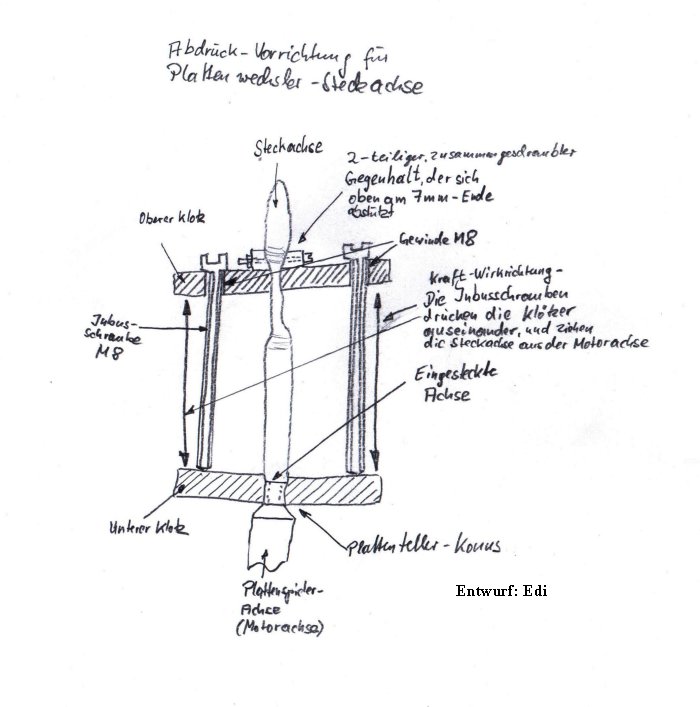 Abdrück-Vorrichtung für
Plattenwechsler-Steckachse
Steckachse
2-teiliger, zusammengeschraubter
Gegenhalt, der sich
oben am 7mm-Ende
abstützt
Oberer Klotz
Gewinde M8
Kraft-Wirkrichtung-
Die Inbusschrauben
drücken die Klötzer
auseinander, und ziehen
die Steckachse aus der Motorachse
Inbus-
schraube
M8
Eingesteckte
Achse
Unterer Klotz
Plattenteller-Konus
Plattenspieler-
Achse
(Motorachse)
Entwurf: Edi